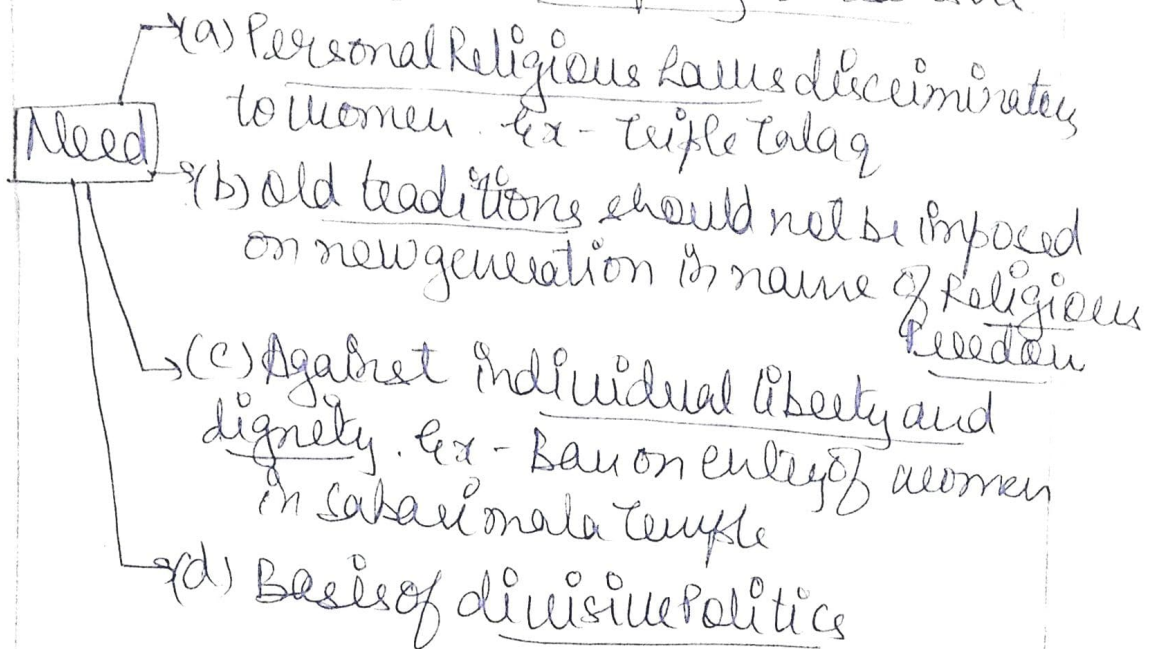 (a) Personal Religious Laws discriminates
to women. Ex - Triple Talaq
Need
(b) Old traditions should not be imposed
on new generation in name of Religious
freedom
(c) Against individual liberty and
dignity. Ex - Ban on entry of women
in Sabarimala Temple
(d) Basis of divisive Politics